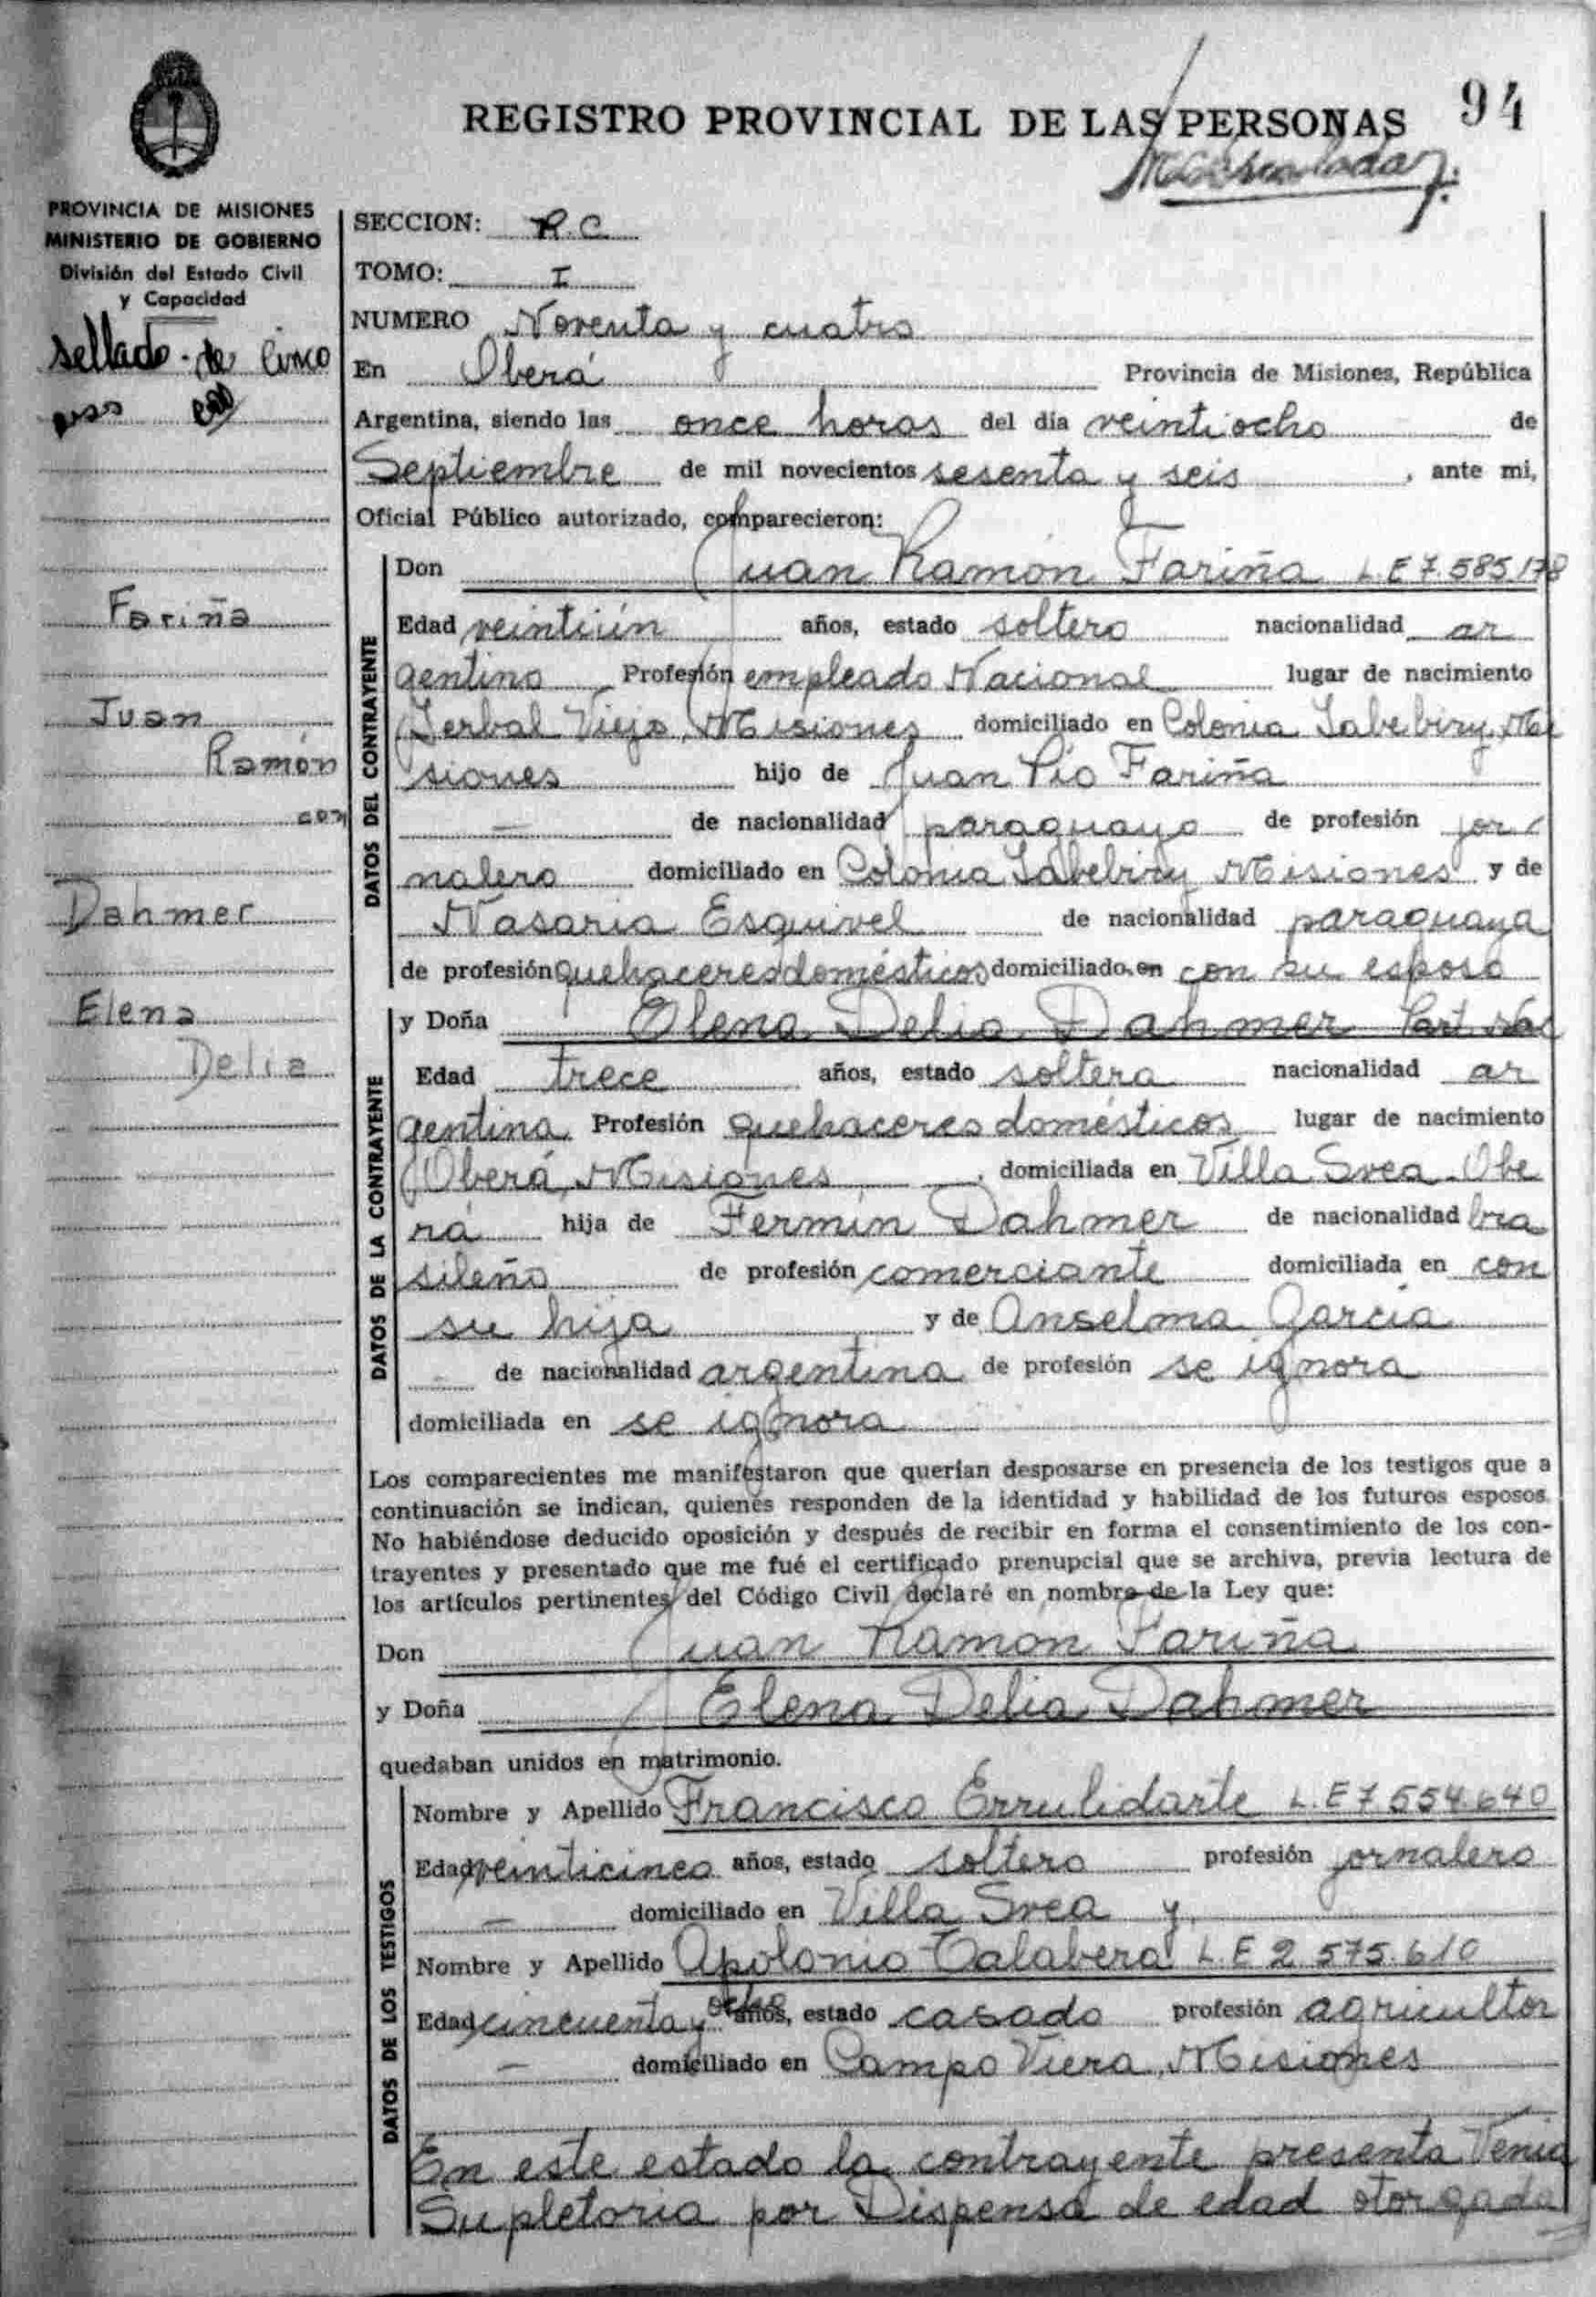 94
REGISTRO PROVINCIAL DE LAS PERSONAS
PROVINCIA DE MISIONES
MINISTERIO DE GOBIERNO
División del Estado Civil
y Capacidad
sellado de Cinco
pesos
Fariña
Juan
Ramón
con
Dahmer
Elena
Delia
SECCION: R.C
TOMO: I
NUMERO Noventa y cuatro
En Oberá Provincia de Misiones, República
Argentina, siendo las once horas del día veintiocho de
Septiembre de mil novecientos sesenta y seis, ante mi,
Oficial Público autorizado, comparecieron:
DATOS DEL CONTRAYENTE
Don Juan Ramón Fariña L.E 7.585.178
Edad veintiún años, estado soltero nacionalidad ar
gentino Profesión empleado Nacional lugar de nacimiento
Yerbal Viejo, Misiones domiciliado en Colonia Yabebiry, Mi
siones hijo de Juan Pío Fariña
— de nacionalidad paraguayo de profesión jor
nalero domiciliado en Colonia Yabebiry Misiones y de
Nasaria Esquivel de nacionalidad paraguaya
de profesión quehaceres domésticos domiciliado en con su esposo
DATOS DE LA CONTRAYENTE
y Doña Elena Delia Dahmer Part. nac
Edad trece años, estado soltera nacionalidad ar
gentina Profesión quehaceres domésticos lugar de nacimiento
Oberá, Misiones, domiciliada en Villa Svea. Obe
rá hija de Fermín Dahmer de nacionalidad bra
sileño de profesión comerciante domiciliada en con
su hija y de Anselma García
de nacionalidad argentina de profesión se ignora
domiciliada en se ignora
Los comparecientes me manifestaron que querían desposarse en presencia de los testigos que a
continuación se indican, quienes responden de la identidad y habilidad de los futuros esposos.
No habiéndose deducido oposición y después de recibir en forma el consentimiento de los con-
trayentes y presentado que me fué el certificado prenupcial que se archiva, previa lectura de
los artículos pertinentes del Código Civil declaré en nombre de la Ley que:
Don Juan Ramón Fariña
y Doña Elena Delia Dahmer
quedaban unidos en matrimonio.
DATOS DE LOS TESTIGOS
Nombre y Apellido Francisco Errulidarte L.E 7.554.640
Edad veinticinco años, estado soltero profesión jornalero
— domiciliado en Villa Svea y
Nombre y Apellido Apolonio Talabera L.E 2.575.610
Edad cincuenta y ocho años, estado casado profesión agricultor
— domiciliado en Campo Viera, Misiones
En este estado la contrayente presenta Venia
Supletoria por Dispensa de edad otorgada